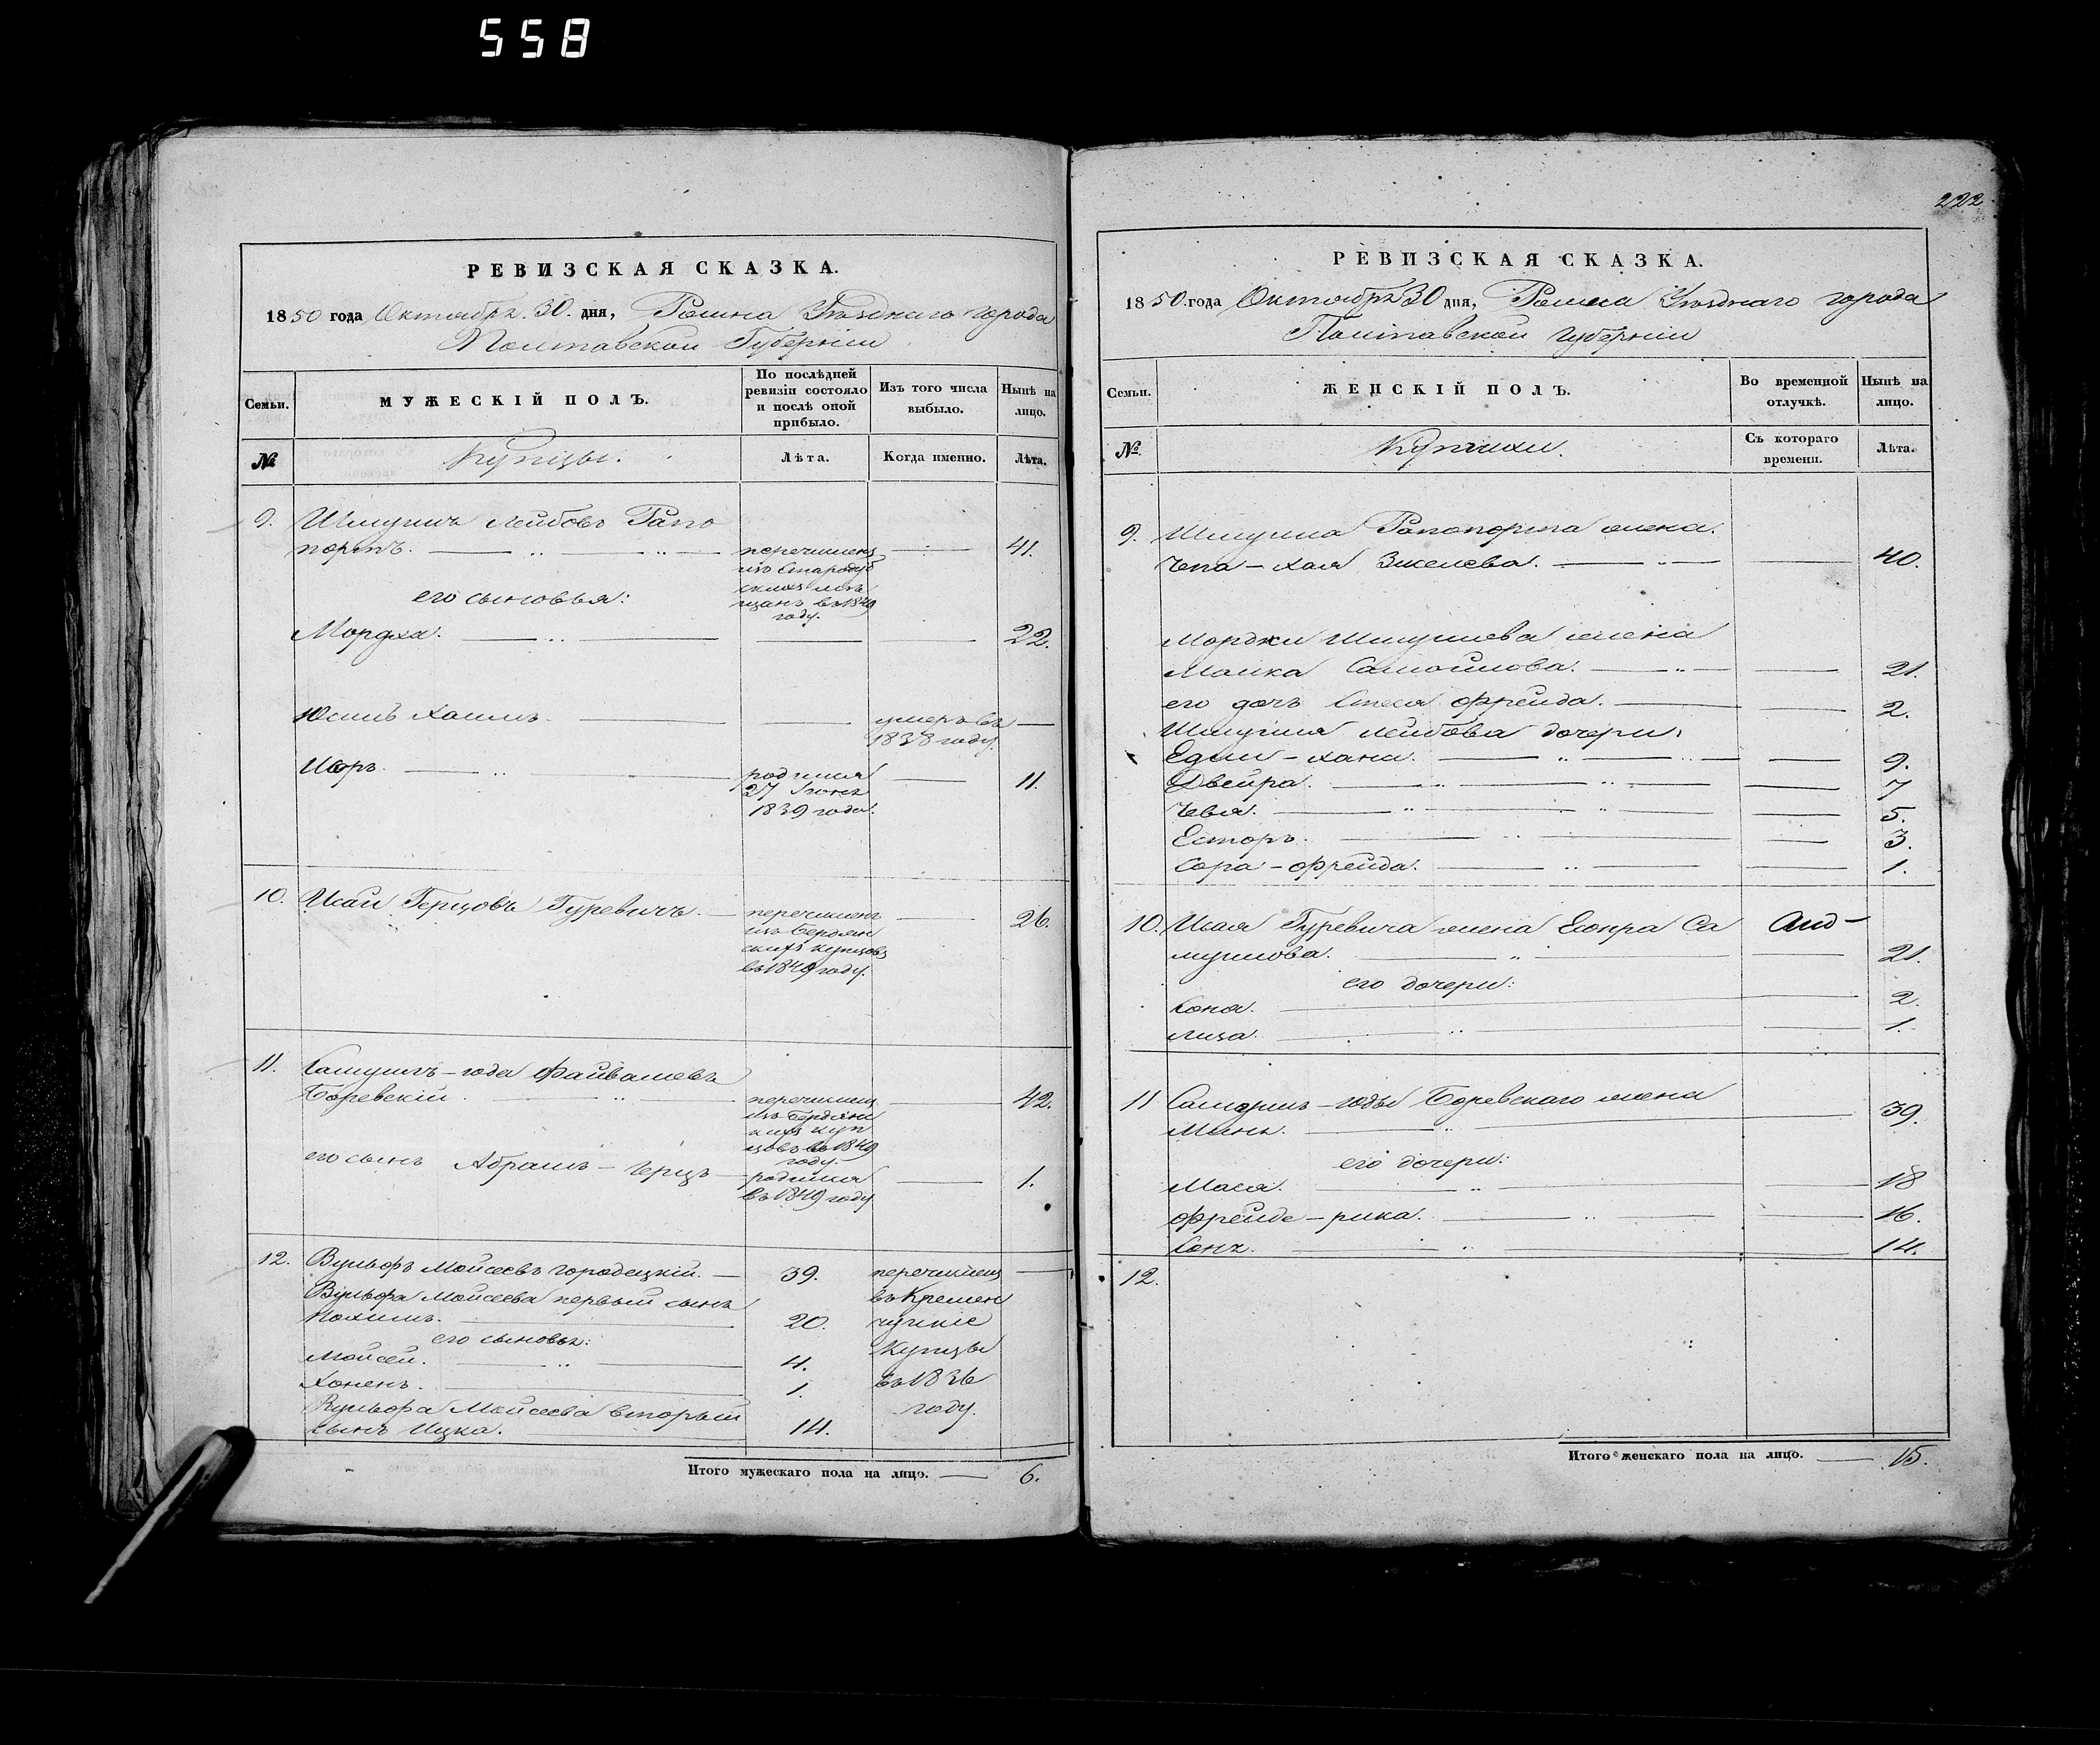 558
РЕВИЗСКАЯ СКАЗКА.
1850 года Октября 30. дня, Ромна Уѣзднаго города
Полтавской Губерніи
Семьи.
МУЖЕСКІЙ ПОЛЪ.
По послѣдней ревизіи состояло и послѣ оной прибыло.
Изъ того числа выбыло.
Нынѣ на лицо.
№
Купцы.
Лѣта.
Когда именно.
Лѣта.
9. Шмуилъ Лейбовъ Рапо
портъ. перечислен 41.
изъ Стародуб
скихъ мѣ
щанъ въ 1849
году.
его сыновья:
Мордха. 22.
Юсипъ Хаимъ. умеръ въ
1838 году.
Исоръ. родился 11.
27 Іюня
1839 года.
10. Исай Герцовъ Гуревичъ. перечисленъ 26.
изъ Бердян
скихъ купцовъ
въ 1849 году.
11. Самуилъ-года Файвашевъ
Боревскій. перечислен 42.
изъ Бердянс
кихъ куп
цовъ въ 1849
году.
его сынъ Абрамъ-Герцъ родился 1.
въ 1849 году
12. Вульфъ Мойсеевъ Городецкій. 39. перечислен
Вульфа Мойсеева первый сынъ въ Кремен
Нохимъ. 20. чугскіе
его сыновья: Купцы
Мойсей. 4.
Хоненъ. 1. въ 1836
Вульфа Мойсеева вторый году.
сынъ Ицка. 14.
Итого мужескаго пола на лицо. 6.
222
РЕВИЗСКАЯ СКАЗКА.
1850. года Октября 30 дня, Ромна Уѣзднаго города
Полтавской Губерніи
Семьи.
ЖЕНСКІЙ ПОЛЪ.
Во временной отлучкѣ.
Нынѣ на лицо.
№
Купчихи.
Съ котораго времени.
Лѣта.
9. Шмуила Рапопорта жена.
Чепа-Хая Зиселева. 40.
Мордхи Шмуилева жена
Малка Самойлова. 21.
его дочь Стеся Фрейда. 2.
Шмуила Лейбова дочери:
Едли-Хана. 9.
Двейра. 7
Чевя. 5.
Есторъ. 3.
Сора-Фрейда. 1.
10. Исая Гуревича жена Са
муилова. 21.
его дочери:
Соня. 2.
Лиза. 1.
11 Самуилъ-годы Боревскаго жена
Миня. 39.
его дочери:
Мася. 18
Фрейде-рика. 16.
Соня. 14.
12.
Итого женскаго пола на лицо. 15.